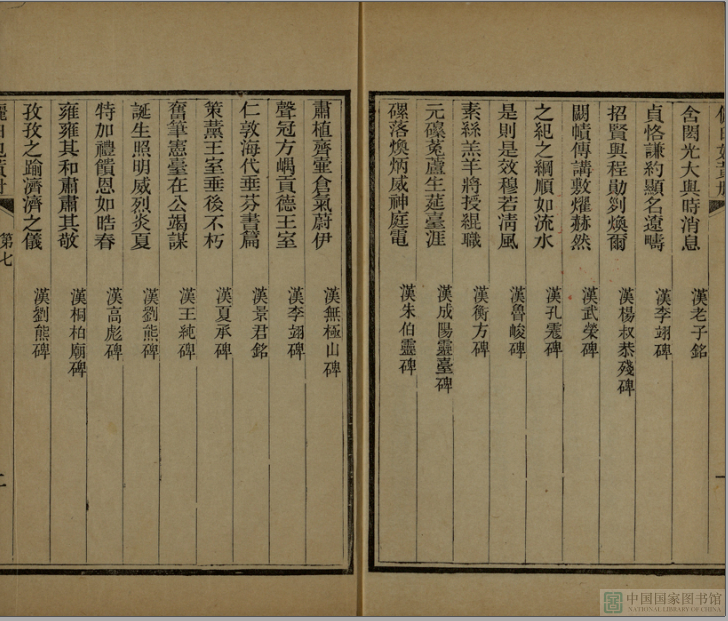 舍闳光大與時消息 漢老子銘
貞恪謙約顯名遠疇 漢李翊碑
招賢與程勛剶煥爾 漢楊叔恭殘碑
闢幘傳講敷燿赫然 漢武榮碑
之紀之綱順如流水 漢孔霔碑
是則是效穆若清風 漢魯峻碑
素絲羔羊將授緄職 漢衡方碑
元礠菟蘆生莚臺涯 漢成陽靈臺碑
磥落煥炳威神庭電 漢朱伯靈碑
肅植齊壷倉氣蔚伊 漢無極山碑
聲冠方嵎貢德王室 漢李翊碑
仁敦海代垂芬書篇 漢景君銘
策薰王室垂後不朽 漢夏承碑
奮筆憲臺在公竭謀 漢王純碑
誕生照明威烈炎夏 漢劉熊碑
特加禮饋恩如晧春 漢高彪碑
雍雍其和肅肅其敬 漢桐柏廟碑
孜孜之踰濟濟之儀 漢劉熊碑
第七
二
中国国家图书馆
NATIONAL LIBRARY OF CHINA